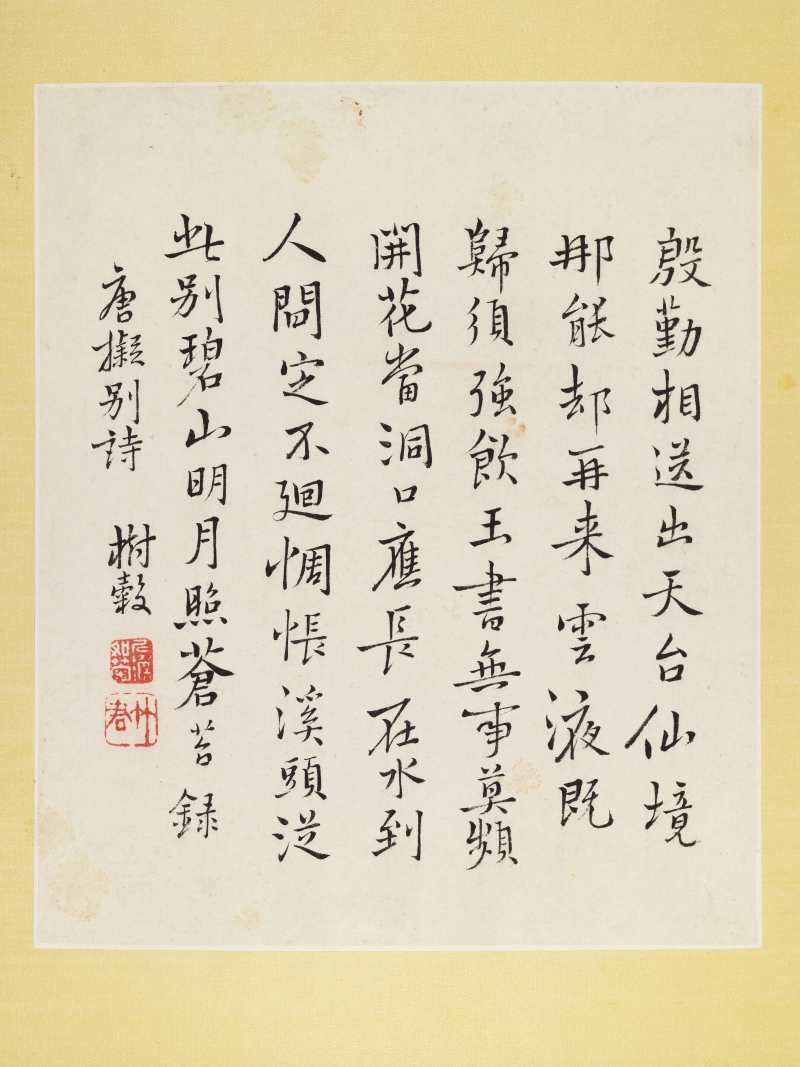 殷勤相送出天台仙境
那能却再来雲液既
歸須強飲玉書無事莫頻
開花當洞口應長在水到
人間定不廻惆悵溪頭從
此別碧山明月照蒼苔錄
唐擬別詩 樹穀
竹君